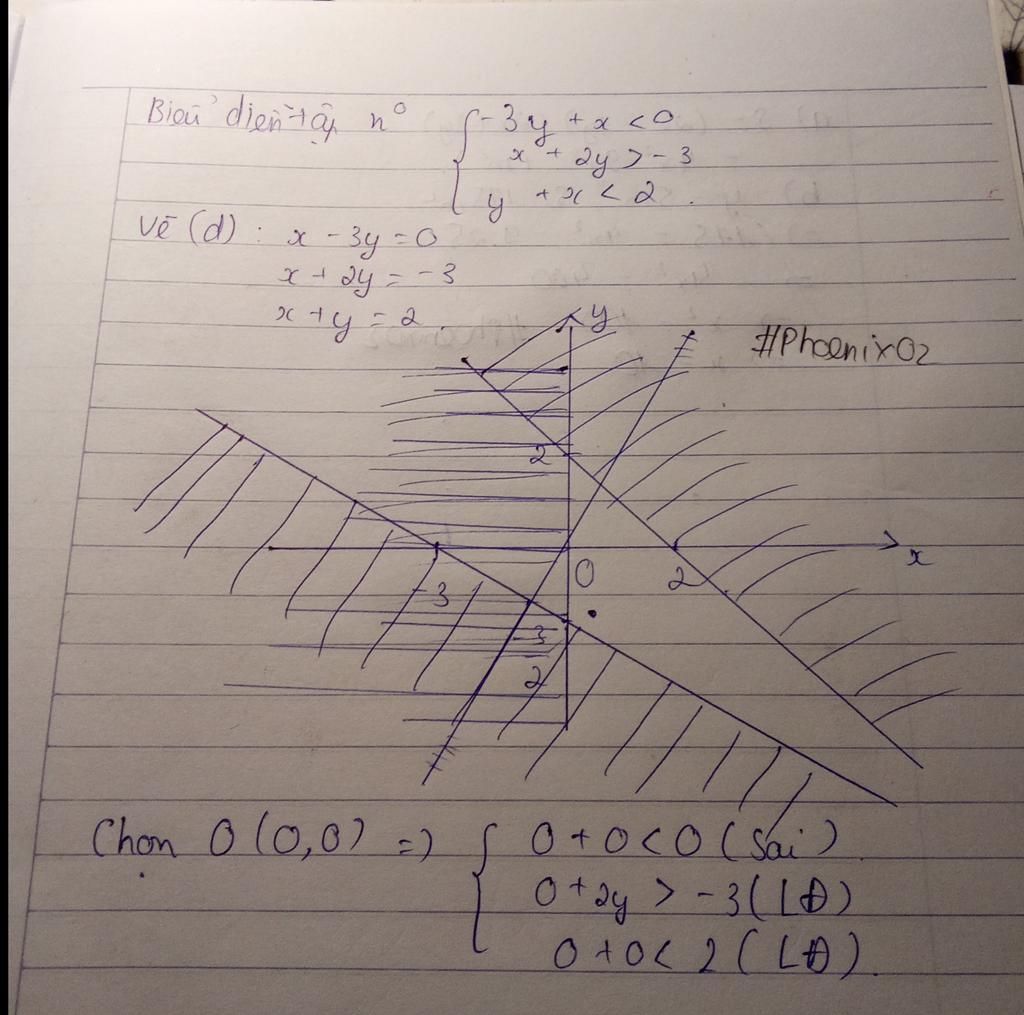 Biểu diễn tập n⁰ { -3y + x < 0
x + 2y > -3
y + x < 2.
Vẽ (d): x - 3y = 0
x + 2y = -3
x + y = 2.
y
#Phoenix02
2
x
0
2
-3
-3
2
Chọn O(0,0) => { 0 + 0 < 0 (Sai)
0 + 2y > -3 (LĐ)
0 + 0 < 2 (LĐ).